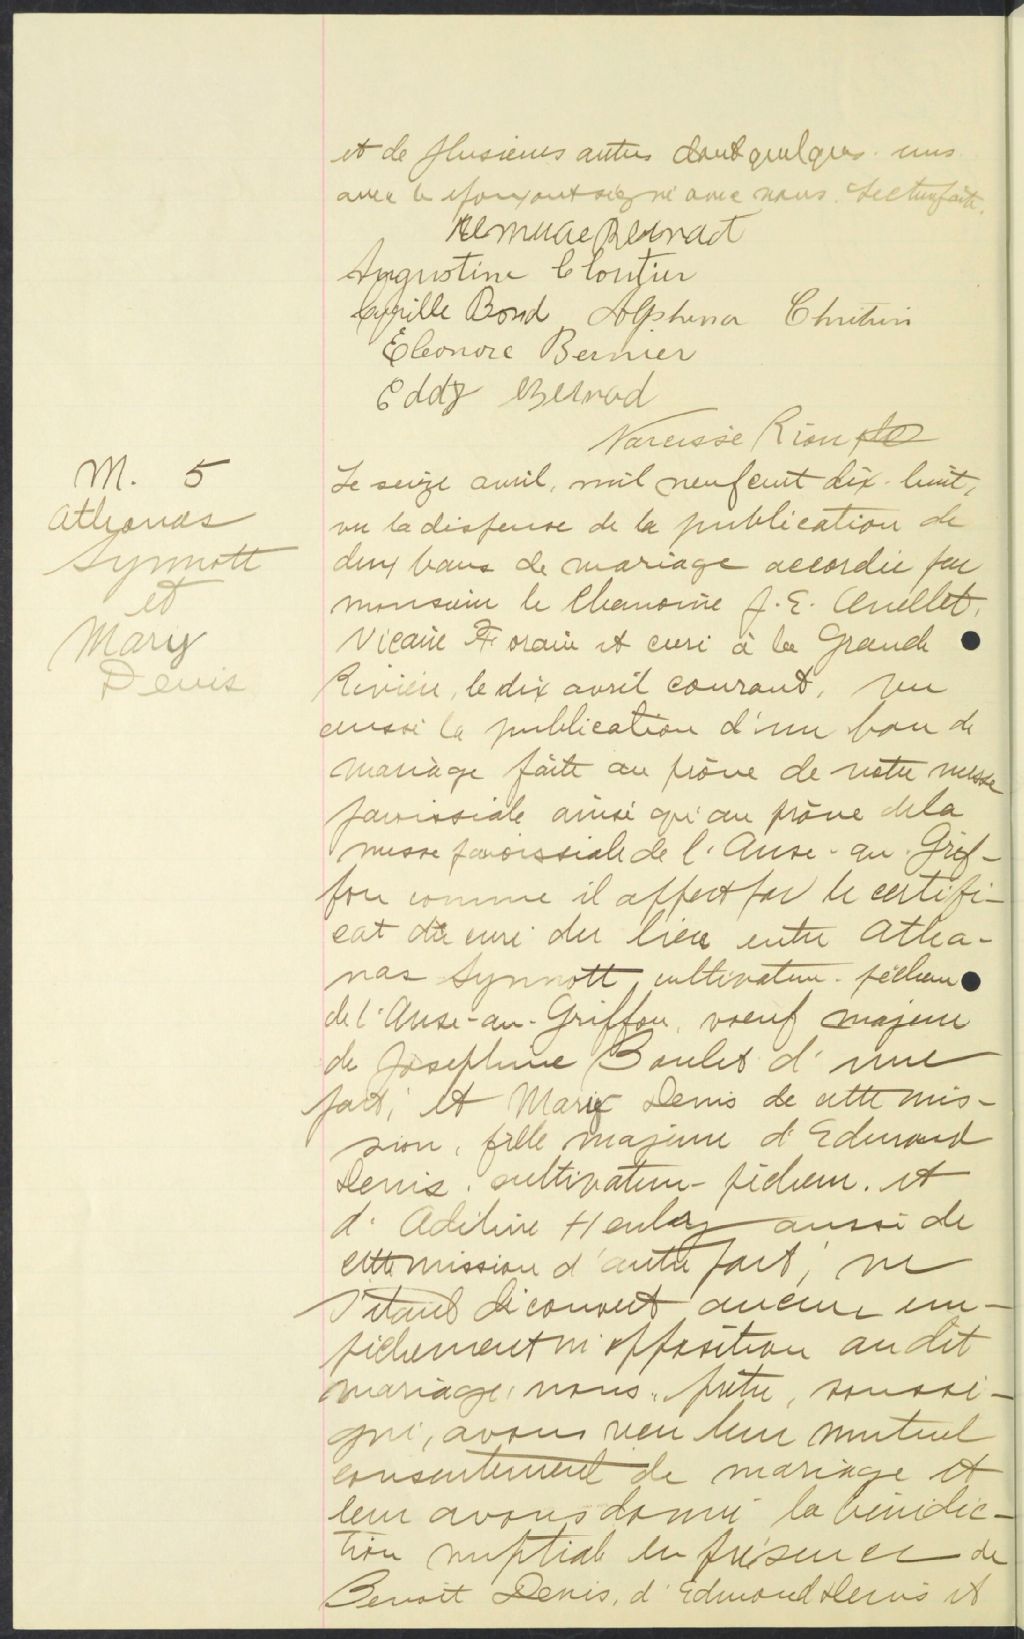 et de plusieurs autres dont quelques-uns
avec le époux ont signé avec nous. Lecture faite.
Bernard
Augustine Cloutier
Cyrille Bond Alphena Chretien
Eleonore Bernier
Eddy Bernad
Narcisse Riou ptre
M. 5
Athanas
Synnott
et
Mary
Denis
Le seize avril, mil neuf cent dix-huit,
vu la dispense de la publication de
deux bans de mariage accordée par
monsieur le Chanoine J. E. Ouellet,
Vicaire Forain et curé à la Grande
Rivière, le dix avril courant, vu
aussi la publication d'un ban de
mariage faite au prône de notre messe
paroissiale ainsi qu'au prône de la
messe paroissiale de l'Anse-au-Grif-
fon comme il appert par le certifi-
cat du curé du lieu entre Atha-
nas Synnott, cultivateur-pêcheur
de l'Anse-au-Griffon, veuf majeur
de Josephine Boulet d'une
part, et Mary Denis de cette mis-
sion, fille majeure d'Edmond
Denis, cultivateur-pêcheur, et
d'Adéline Henley aussi de
cette mission d'autre part; ne
s'étant découvert aucun em-
pêchement ni opposition au dit
mariage, nous, prêtre, soussi-
gné, avons reçu leur mutuel
consentement de mariage et
leur avons donné la bénédic-
tion nuptiale en présence de
Benoit Denis, d'Edmond Denis et